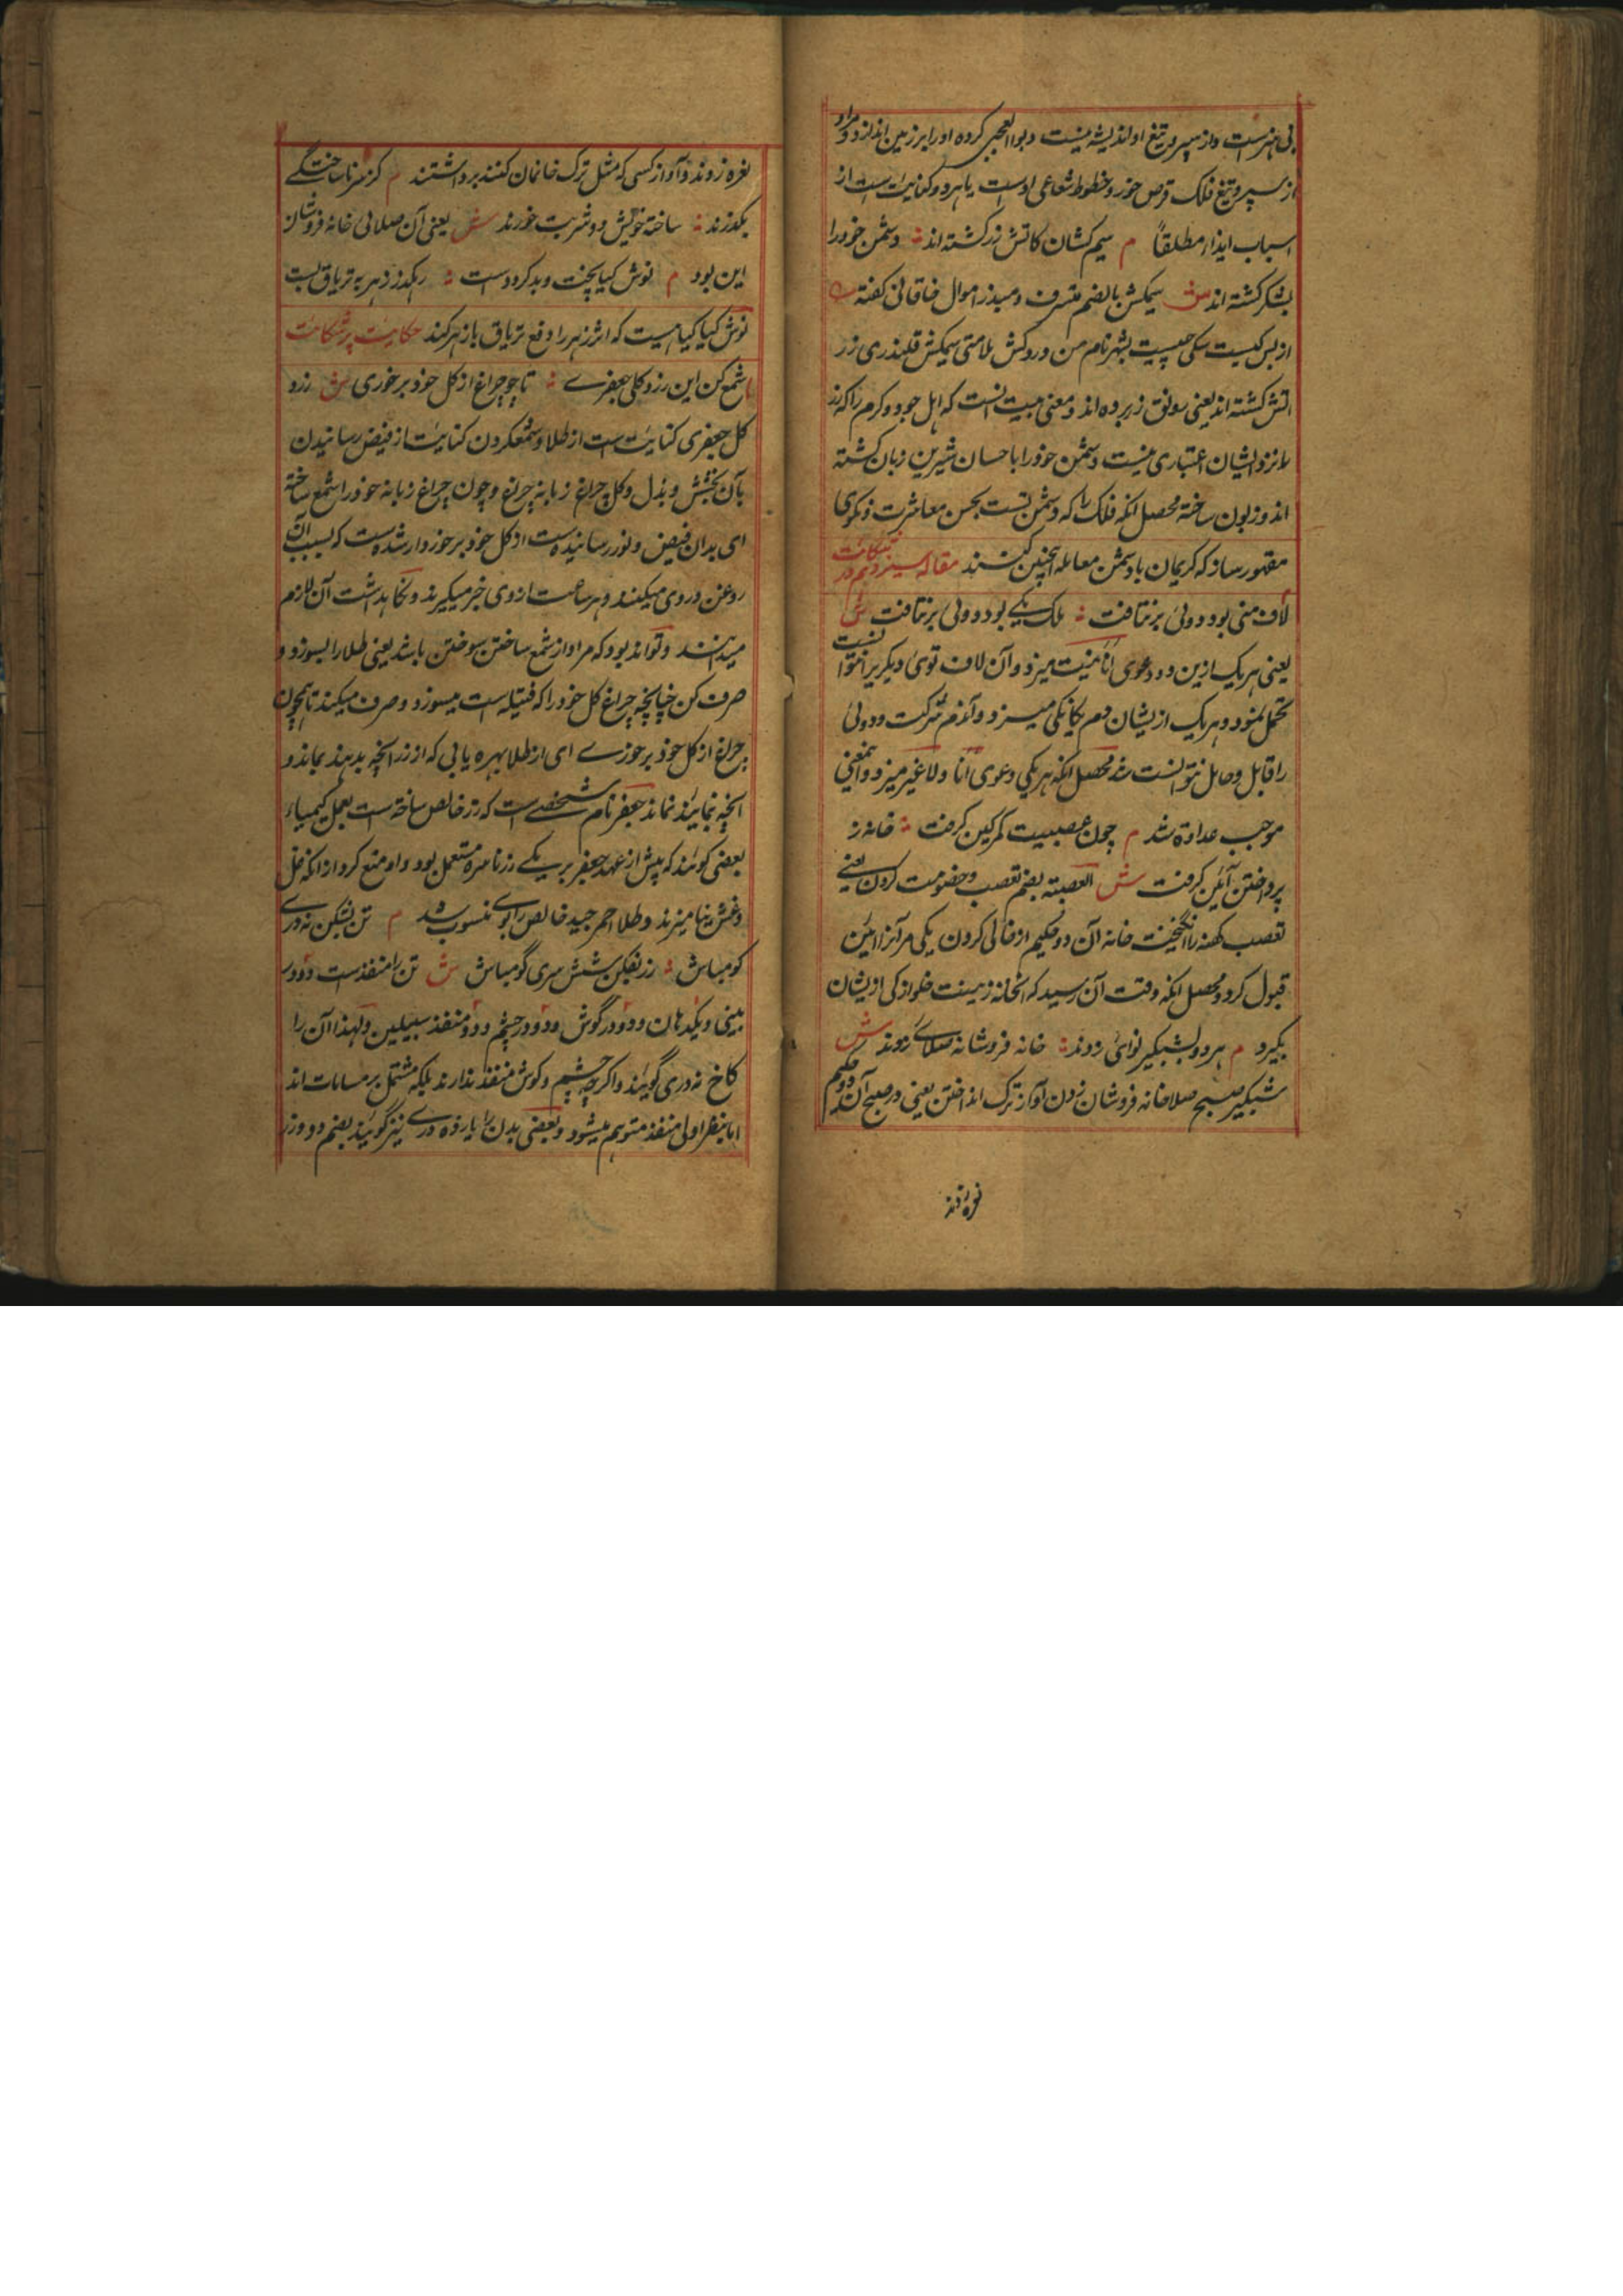 بی هنرست و از سپر و تیغ او اندیشه نیست و بوالعجبی کرده او را بر زمین اندازد و مراد
از سپر و تیغ فلک قرص خور و خطوط شعاعی اوست یا هر دو کنایت است از
اسباب ایذا مطلقاً م سیم کشان کاتش زر کشته اند ؞ دشمن خود را
بشکر کشته اند ش سیمکش بالضم متسرف و مبذر اموال خاقانی گفته
از بس کیست سکی چیست بشهر نام من درد کش ملامتی سیمکش قلندری زر
آتش کشته اند یعنی رونق زر برده اند و معنی بیت آنست که اهل جود و کرم را که زر
را نزد ایشان اعتباری نیست دشمن خود را با حسان شیرین زبان کشته
اند و زبون ساخته محصل آنکه فلک را که دشمن تست بحسن معاشرت و نکوی
مقهور ساز که کریمان با دشمن معامله اینچنین کنند مقاله سیزدهم در شکایت
لاف منی بود و دوئی برنتافت ؞ ملک یکی بود و دوئی برنتافت ش
یعنی هر یک ازین دو دعوی انانیت میزد و آن لاف توئ دیگر بر نتوانست
تحمل نمود و هر یک از یشان دم یکانکی میزد و آندم شرکت و دوئی
را قابل و حامل نتوانست شد محصل آنکه هر یکی دعوی انا ولا غیر میزد و اینمعنی
موجب عداوة شد م چون عصبیت کمر کین کرفت ؞ خانه ز
پرداختن آئین کرفت ش العصبته بضم تعصب و خصومت کردن یعنی
تعصب کهنه را انکیخت خانه آن دو حکیم از خالی کردن یکی مر آنرا ائین
قبول کرد و محصل آنکه وقت آن رسید که انخانه زینت خلو از یکی ازیشان
بگیرد م هر دو بشبگیر نوائ زدند ؞ خانه فروشانه صلائے زدند ش
شبگیر صبح صلا خانه فروشان زدن آواز ترک انداختن یعنی در صبح آن دو حکیم
نعره زدند
نعره زدند و آواز کسی که مثل ترک خانمان کنند برداشتند م کز سر ناساختگے
بگذرند ؞ ساخته خویش دو شربت خورند ش یعنی آن صلائی خانه فروشان
این بود م نوش کیا پخت و بدو کرد دست ؞ رهگذر زهر به تریاق بست
نوش کیا کیاهیست که اثر زهر را دفع تریاق باز هر کند حکایت پر شکایت
شمع کن این زرد کل جعفرے ؞ تا چو چراغ از کل خود برخوری ش زرد
کل جعفری کنایت ست از طلا و شمع کردن کنایت از فیض رسانیدن
بآن بخشش و بذل و کل چراغ زبانه چراغ و چون چراغ زبانه خود را شمع ساخته
ای بدان فیض و نور رسانیده است از کل خود برخوردار شده ست که بسبب آن
روغن در وی میکنند و هر ساعت از وی خبر میگیرند و نکاهداشت آن لازم
میدانند و تواند بود که مراد از شمع ساختن سوختن باشد یعنی طلا را بسوز و
صرف کن چنانچه چراغ کل خود را که فتیله است میسوزد و صرف میکند تا همچون
چراغ از کل خود برخورے ای از طلا بهره یابی که از زر آنچه بدهند بماند و
آنچه نمایند نماند جعفر نام شخصے است که زر خالص ساخته است بعمل کیمیاء
بعضی گویند که پیش از عهد جعفر برمکے زر ناسره مستعمل بود و او منع کرد از انکه غل
و غش نیامیزند و طلا احمر جید خالص را بوے منسوب شد م تن بشکن نه درے
کو مباش ؞ زر بفکن شش سری گو مباش ش تن را منفذ ست دو در
بینی و یکدهان و دو در گوش و دو در چشم و دو منفذ سبیلین و لهذا آن را
کاخ نه دری گویند و اکرچه چشم و کوش منفذ ندارند بلکه مشتمل بر مسامات اند
اما بنظر اولی منفذ متوهم میشود و بعضی بدن را یازده درے نیز گویند بضم دو در